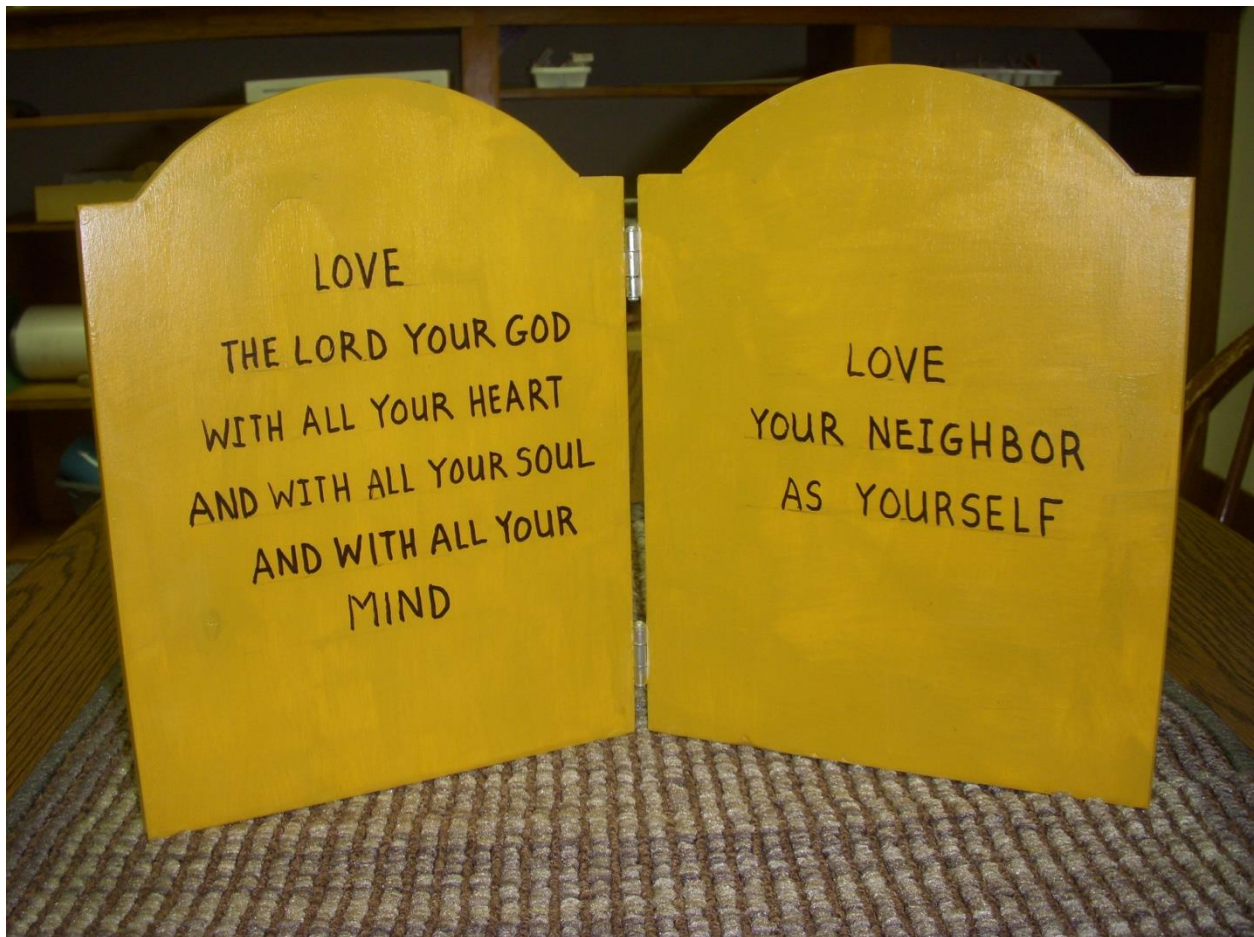 LOVE
THE LORD YOUR GOD
WITH ALL YOUR HEART
AND WITH ALL YOUR SOUL
AND WITH ALL YOUR
MIND
LOVE
YOUR NEIGHBOR
AS YOURSELF